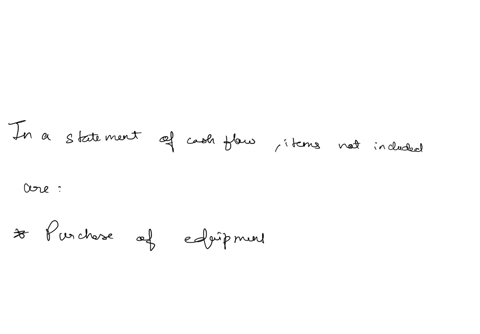 In a statement of cash flow, items not included
are:
* Purchase of equipment